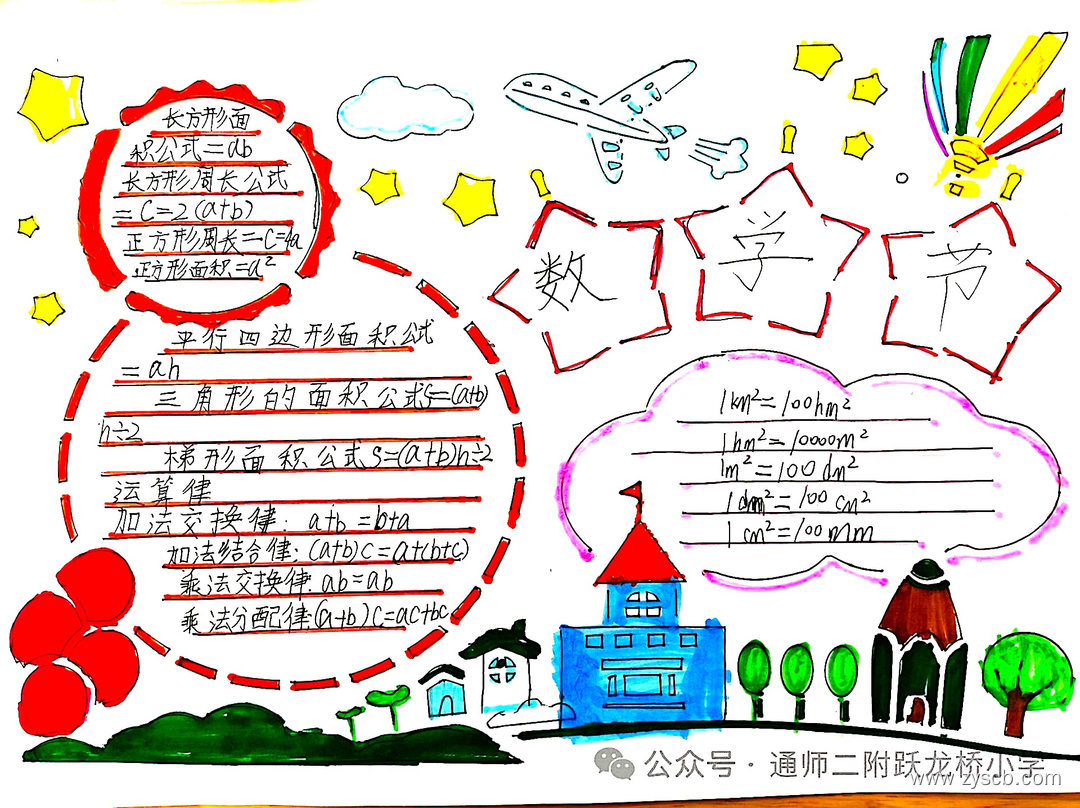 长方形面
积公式=ab
长方形周长公式
=C=2(a+b)
正方形周长=C=4a
正方形面积=a²
平行四边形面积公式
=ah
三角形的面积公式S=(a+b)
h÷2
梯形面积公式S=(a+b)h÷2
运算律
加法交换律:a+b=b+a
加法结合律:(a+b)c=a+(b+c)
乘法交换律:ab=ab
乘法分配律:(a+b)c=ac+bc
数学节
1km²=100hm²
1hm²=10000m²
1m²=100dm²
1dm²=100cm²
1cm²=100mm
公众号·通师二附跃龙桥小学
www.zyscb.com